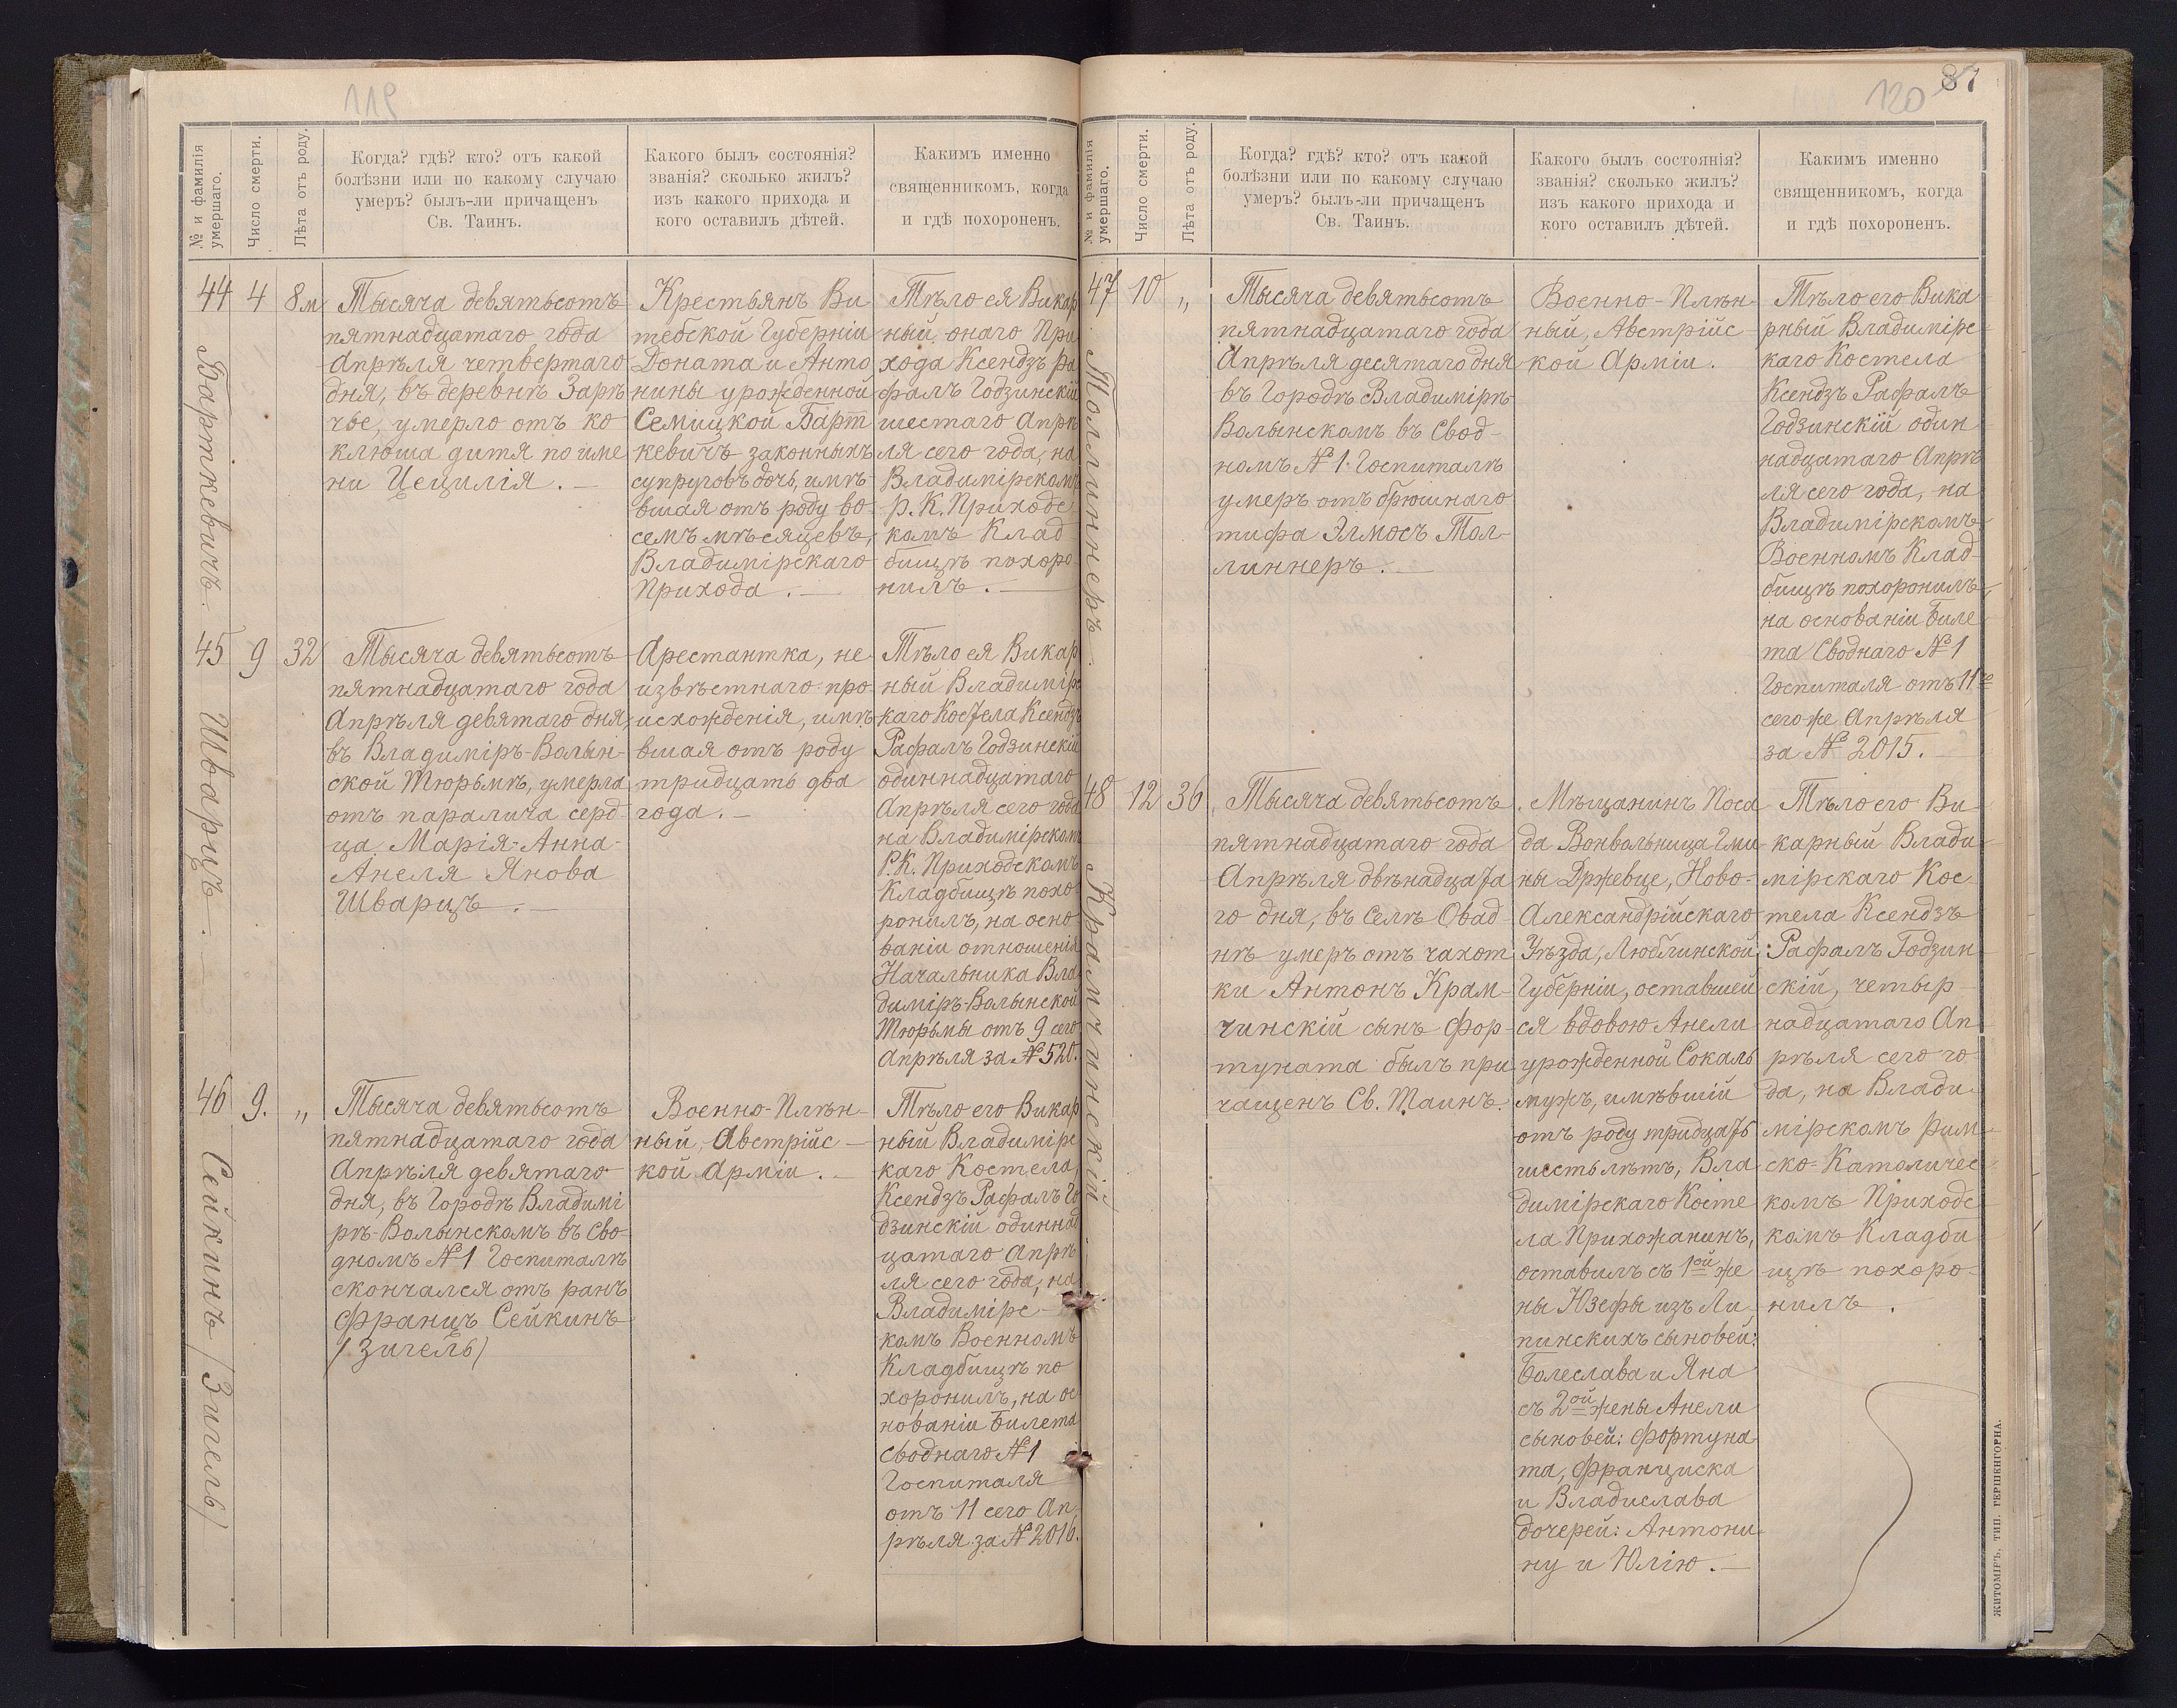 119
№ и фамилія умершаго.
Число смерти.
Лѣта отъ роду.
Когда? гдѣ? кто? отъ какой
болѣзни или по какому случаю
умеръ? былъ-ли причащенъ
Св. Таинъ.
Какого былъ состоянія?
званія? сколько жилъ?
изъ какого прихода и
кого оставилъ дѣтей.
Какимъ именно
священникомъ, когда
и гдѣ похороненъ.
44
Барткевичъ.
4
8 м
Тысяча девятьсотъ
пятнадцатаго года
Апрѣля четвертаго
дня, въ деревнѣ Зарѣ
чье, умерло отъ ко
клюша дитя по име
ни Цецилія. —
Крестьянъ Ви
тебской Губерніи
Доната и Анто
нины урожденной
Семицкой Барт
кевичъ законныхъ
супруговъ дочь, имѣ
вшая отъ роду во
семъ мѣсяцевъ,
Владимірскаго
Прихода. —
Тѣло ея Викар
ный онаго При
хода Ксендзъ Ра
фалъ Годзинскій
шестаго Апрѣ
ля сего года, на
Владимірскомъ
Р. К. Приходс
комъ Клад
бищѣ похоро
нилъ. —
45
Шварцъ.
9
32
Тысяча девятьсотъ
пятнадцатаго года
Апрѣля девятаго дня,
въ Владиміръ-Волын-
ской Тюрьмѣ, умерла
отъ паралича серд-
ца Марія-Анна-
Анеля Янова
Шварцъ. —
Арестантка, не
извѣстнаго про
исхожденія, имѣ
вшая отъ роду
тридцать два
года. —
Тѣло ея Викар
ный Владимірс
каго Костела Ксендзъ
Рафалъ Годзинскій
одиннадцатаго
Апрѣля сего года
на Владимірскомъ
Р. К. Приходскомъ
Кладбищѣ похо
ронилъ, на осно
ваніи отношенія
Начальника Вла
диміръ-Волынской
Тюрьмы отъ 9 сего
Апрѣля за № 520.
46
Сейкинъ /Зигель/
9.
„
Тысяча девятьсотъ
пятнадцатаго года
Апрѣля девятаго
дня, въ Городѣ Владимі
рѣ-Волынскомъ въ Сво-
дномъ № 1 Госпиталѣ
скончался отъ ранъ
Францъ Сейкинъ
/Зигель/
Военно-Плѣн-
ный, Австрійс-
кой Арміи. —
Тѣло его Викар
ный Владимірс
каго Костела,
Ксендзъ Рафалъ Го
дзинскій одиннад
цатаго Апрѣ
ля сего года, на
Владимірс-
комъ Военномъ
Кладбищѣ по
хоронилъ, на ос
нованіи Билета
Своднаго № 1
Госпиталя
отъ 11 сего Ап
рѣля за № 2016.
120
87
№ и фамилія умершаго.
Число смерти.
Лѣта отъ роду.
Когда? гдѣ? кто? отъ какой
болѣзни или по какому случаю
умеръ? былъ-ли причащенъ
Св. Таинъ.
Какого былъ состоянія?
званія? сколько жилъ?
изъ какого прихода и
кого оставилъ дѣтей.
Какимъ именно
священникомъ, когда
и гдѣ похороненъ.
47
Толлиннеръ.
10
„
Тысяча девятьсотъ
пятнадцатаго года
Апрѣля десятаго дня
въ Городѣ Владимірѣ-
Волынскомъ въ Свод-
номъ № 1 Госпиталѣ
умеръ отъ брюшнаго
тифа Элмосъ Тол-
линнеръ. —
Военно-Плѣн-
ный, Австрійс-
кой Арміи.
Тѣло его Вика
рный Владимірс
каго Костела
Ксендзъ Рафалъ
Годзинскій один
надцатаго Апрѣ
ля сего года, на
Владимірскомъ
Военномъ Клад-
бищѣ похоронилъ,
на основаніи Биле
та Своднаго № 1
Госпиталя отъ 11го
сего же Апрѣля
за № 2015. —
48
Крамчинскій
12
36
Тысяча девятьсотъ
пятнадцатаго года
Апрѣля двѣнадцата
го дня, въ Селѣ Овад-
нѣ умеръ отъ чахот
ки Антонъ Крам-
чинскій сынъ Фор-
туната былъ при
чащенъ Св. Таинъ.
Мѣщанинъ Поса
да Вонвольница Гми
ны Држевце, Ново-
Александрійскаго
Уѣзда, Люблинской
Губерніи, оставшей
ся вдовою Анели
урожденной Сокаль
мужъ, имѣвшій
отъ роду тридцать
шесть лѣтъ, Вла
димірскаго Косте
ла Прихожанинъ,
оставилъ съ 1ой же
ны Юзефы изъ Ли
пинскихъ сыновей:
Болеслава и Яна
съ 2ой жены Анели
сыновей: Фортуна
та, Франциска
и Владислава
дочерей: Антони
ну и Юлію. —
Тѣло его Ви
карный Влади
мірскаго Кос
тела Ксендзъ
Рафалъ Годзин
скій, четыр
надцатаго Ап
рѣля сего го
да, на Влади
мірскомъ Рим
ско-Католичес
комъ Приходс
комъ Кладби
щѣ похоро-
нилъ.
ЖИТОМІРЪ, ТИП. ГЕРШЕНГОРНА.